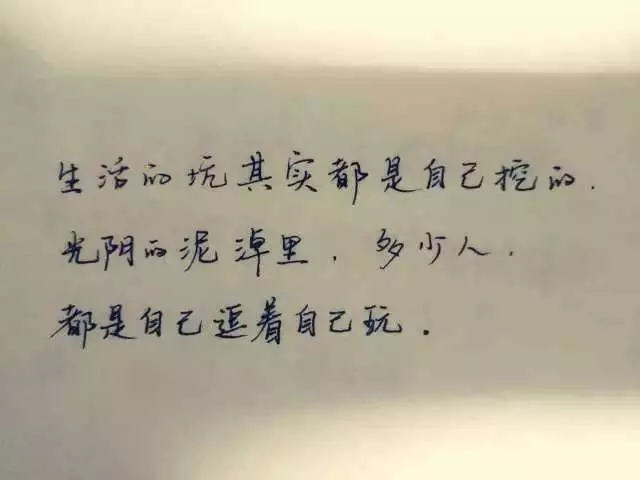 生活的坑其实都是自己挖的.
光阴的泥淖里.多少人.
都是自己逗着自己玩.